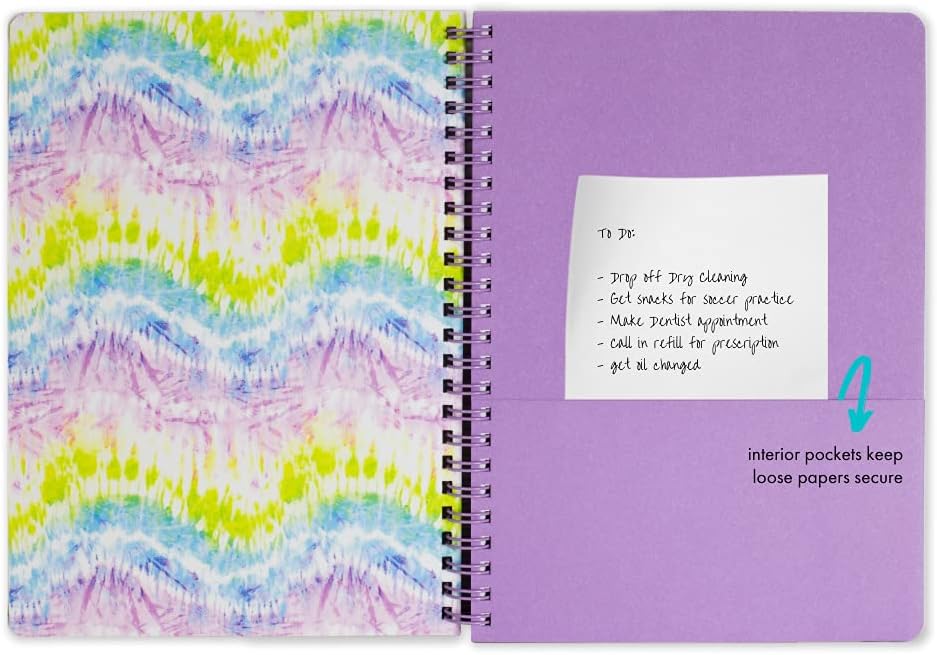 To Do:
- Drop off Dry Cleaning
- Get snacks for soccer practice
- Make Dentist appointment
- call in refill for prescription
- get oil changed
interior pockets keep
loose papers secure